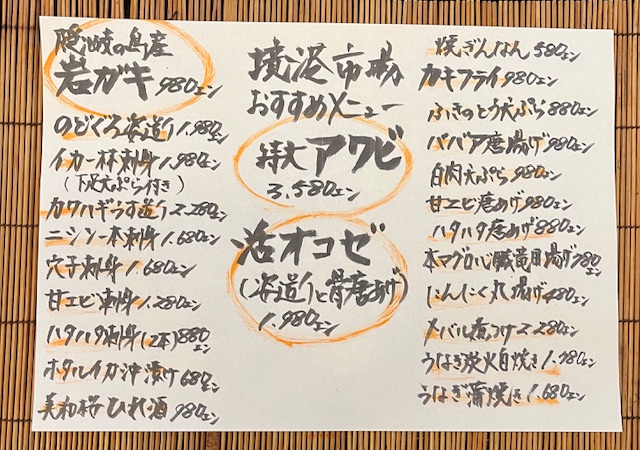 隠岐の島産
岩ガキ 980エン
のどぐろ姿造り 1.980エン
イカ一杯刺身 1.980エン
(下足天ぷら付き)
カワハギうす造り 2.280エン
ニシン一本刺身 1.680エン
穴子刺身 1.680エン
甘エビ刺身 1.280エン
ハタハタ刺身(2本) 880エン
ホタルイカ沖漬け 680エン
美和桜ひれ酒 980エン
境港市場
おすすめメニュー
特大アワビ
3.580エン
活オコゼ
(姿造りと骨唐あげ)
1.980エン
焼ぎんなん 580エン
カキフライ 980エン
ふきのとう天ぷら 880エン
ババア唐揚げ 980エン
白肉天ぷら 980エン
甘エビ唐あげ 980エン
ハタハタ唐あげ 880エン
本マグロ心臓竜田揚げ 780エン
にんにく丸揚げ 480エン
メバル煮つけ 2.280エン
うなぎ炭火白焼き 1.980エン
うなぎ蒲焼き 1.680エン